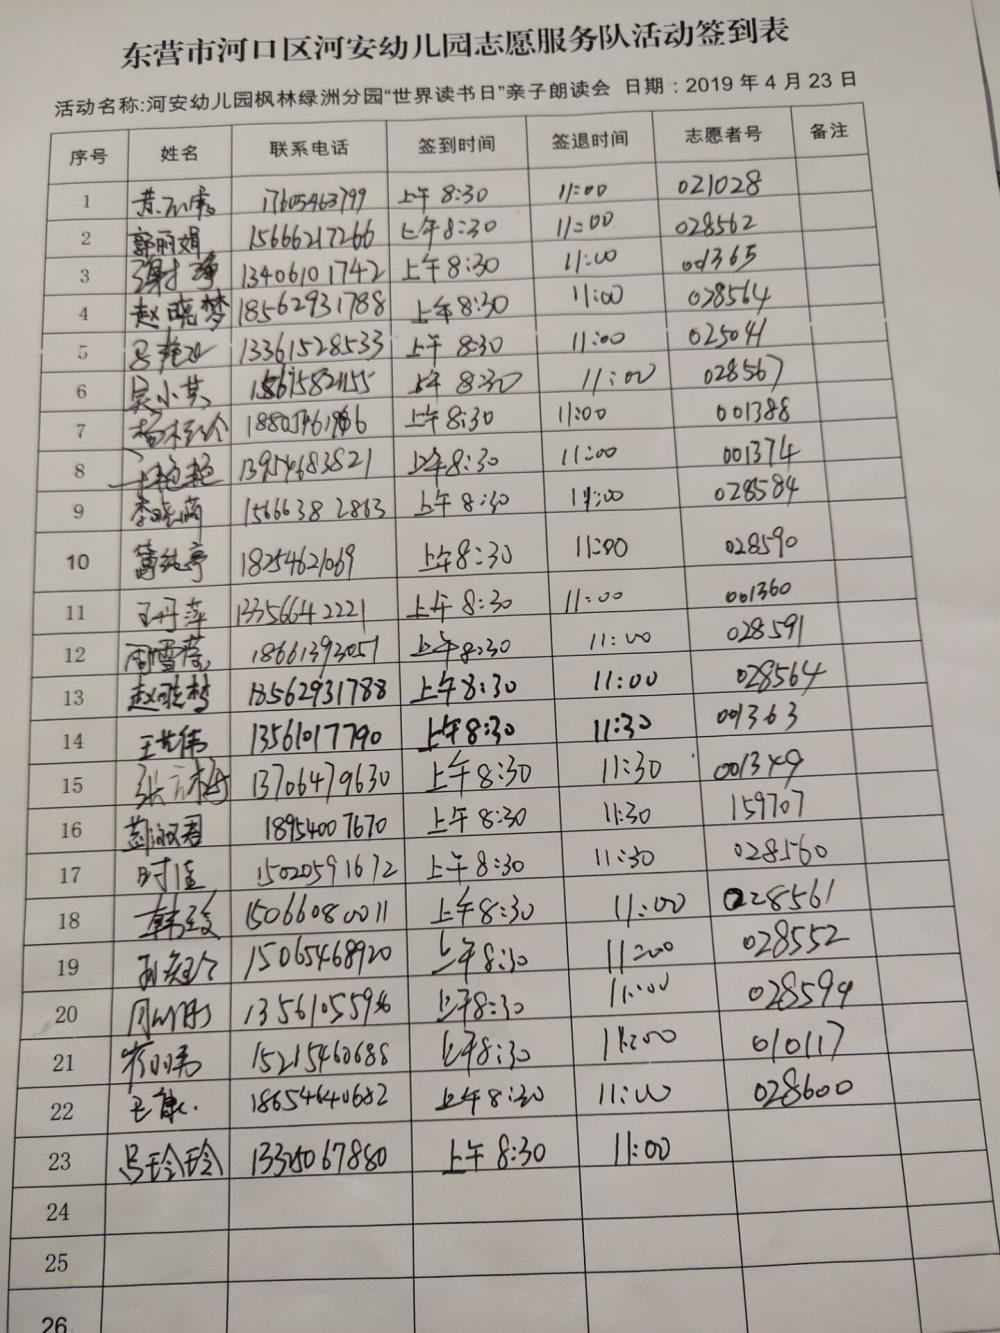 东营市河口区河安幼儿园志愿服务队活动签到表
活动名称:河安幼儿园枫林绿洲分园“世界读书日”亲子朗读会 日期：2019 年 4 月 23 日
序号 姓名 联系电话 签到时间 签退时间 志愿者号 备注
1 17605463799 上午 8:30 11:00 021028
2 郭丽娟 15666217266 上午8:30 11:00 028562
3 13406101742 上午 8:30 11:00 001365
4 赵晓梦 18562931788 上午 8:30 11:00 028564
5 13361528533 上午 8:30 11:00 025041
6 吴小英 上午 8:30 11:00 028567
7 上午 8:30 11:00 001388
8 13954683821 上午8:30 11:00 001374
9 15666382863 上午 8:30 11:00 028584
10 18254621069 上午8:30 11:00 028590
11 王丹萍 13356642221 上午 8:30 11:00 001360
12 18661393051 上午8:30 11:00 028591
13 赵晓梦 18562931788 上午8:30 11:00 028564
14 13561017790 上午8:30 11:30 001363
15 13706479630 上午8:30 11:30 001349
16 18954007670 上午 8:30 11:30 159707
17 时佳 15020591672 上午 8:30 11:30 028560
18 15066080011 上午8:30 11:00 028561
19 15065468920 上午8:30 11:00 028552
20 上午8:30 11:00 028594
21 15215460688 上午8:30 11:00 010117
22 王康 18654640682 上午 8:30 11:00 028600
23 上午 8:30 11:00
24
25
26